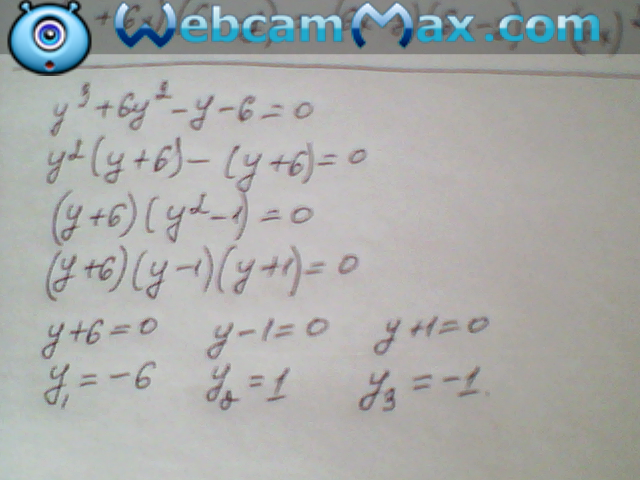 WebcamMax.com
y³ + 6y² - y - 6 = 0
y² (y + 6) - (y + 6) = 0
(y + 6) (y² - 1) = 0
(y + 6) (y - 1) (y + 1) = 0
y + 6 = 0 y - 1 = 0 y + 1 = 0
y₁ = -6 y₂ = 1 y₃ = -1.